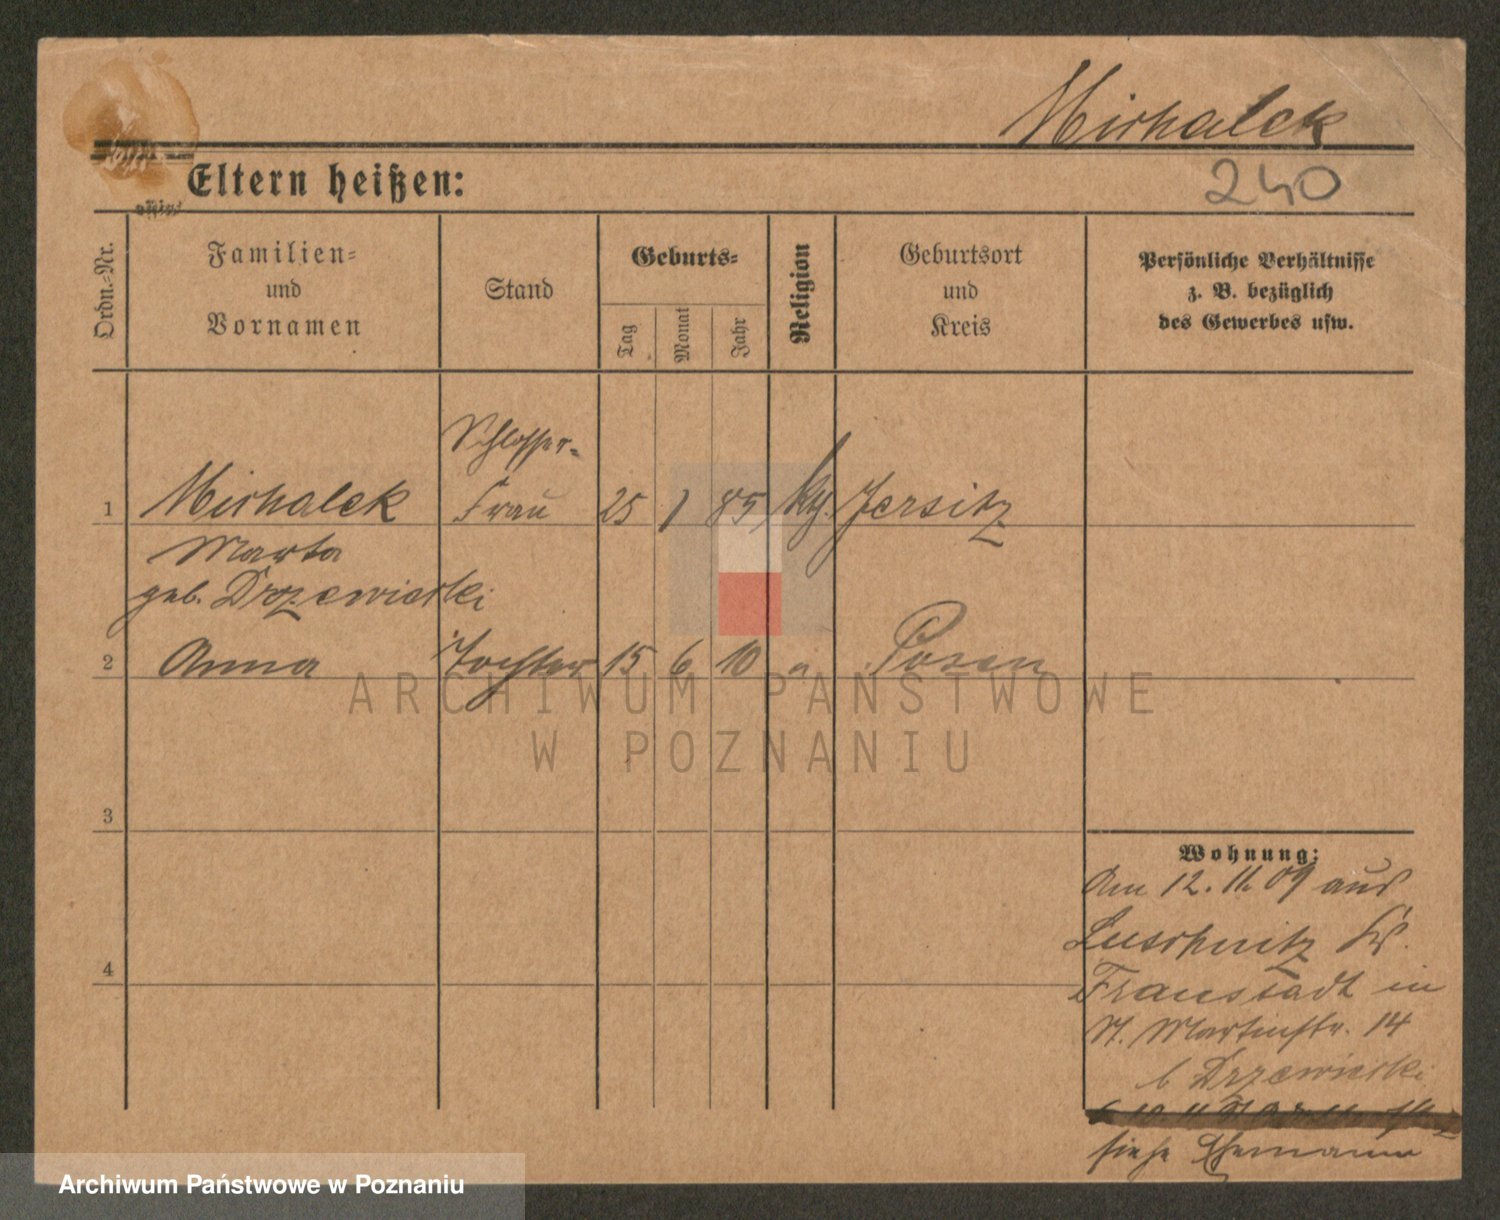 Mirhalek
240
Eltern heißen:
Ordn.-Nr.
Familien-
und
Vornamen
Stand
Geburts-
Tag
Monat
Jahr
Religion
Geburtsort
und
Kreis
Persönliche Verhältnisse
z. B. bezüglich
des Gewerbes usw.
Schlosser-
1 Mirhalek Frau 25 1 85 kg. Jersitz
Marta
geb. Drzewiecki
2 Anna Tochter 15 6 10 " Posen
ARCHIWUM PAŃSTWOWE
W POZNANIU
3
Wohnung:
Am 12.11.09 aus
Luschwitz Kr.
4
Fraustadt in
St. Martinstr. 14
b Drzewiecki
siehe Ehemann
Archiwum Państwowe w Poznaniu